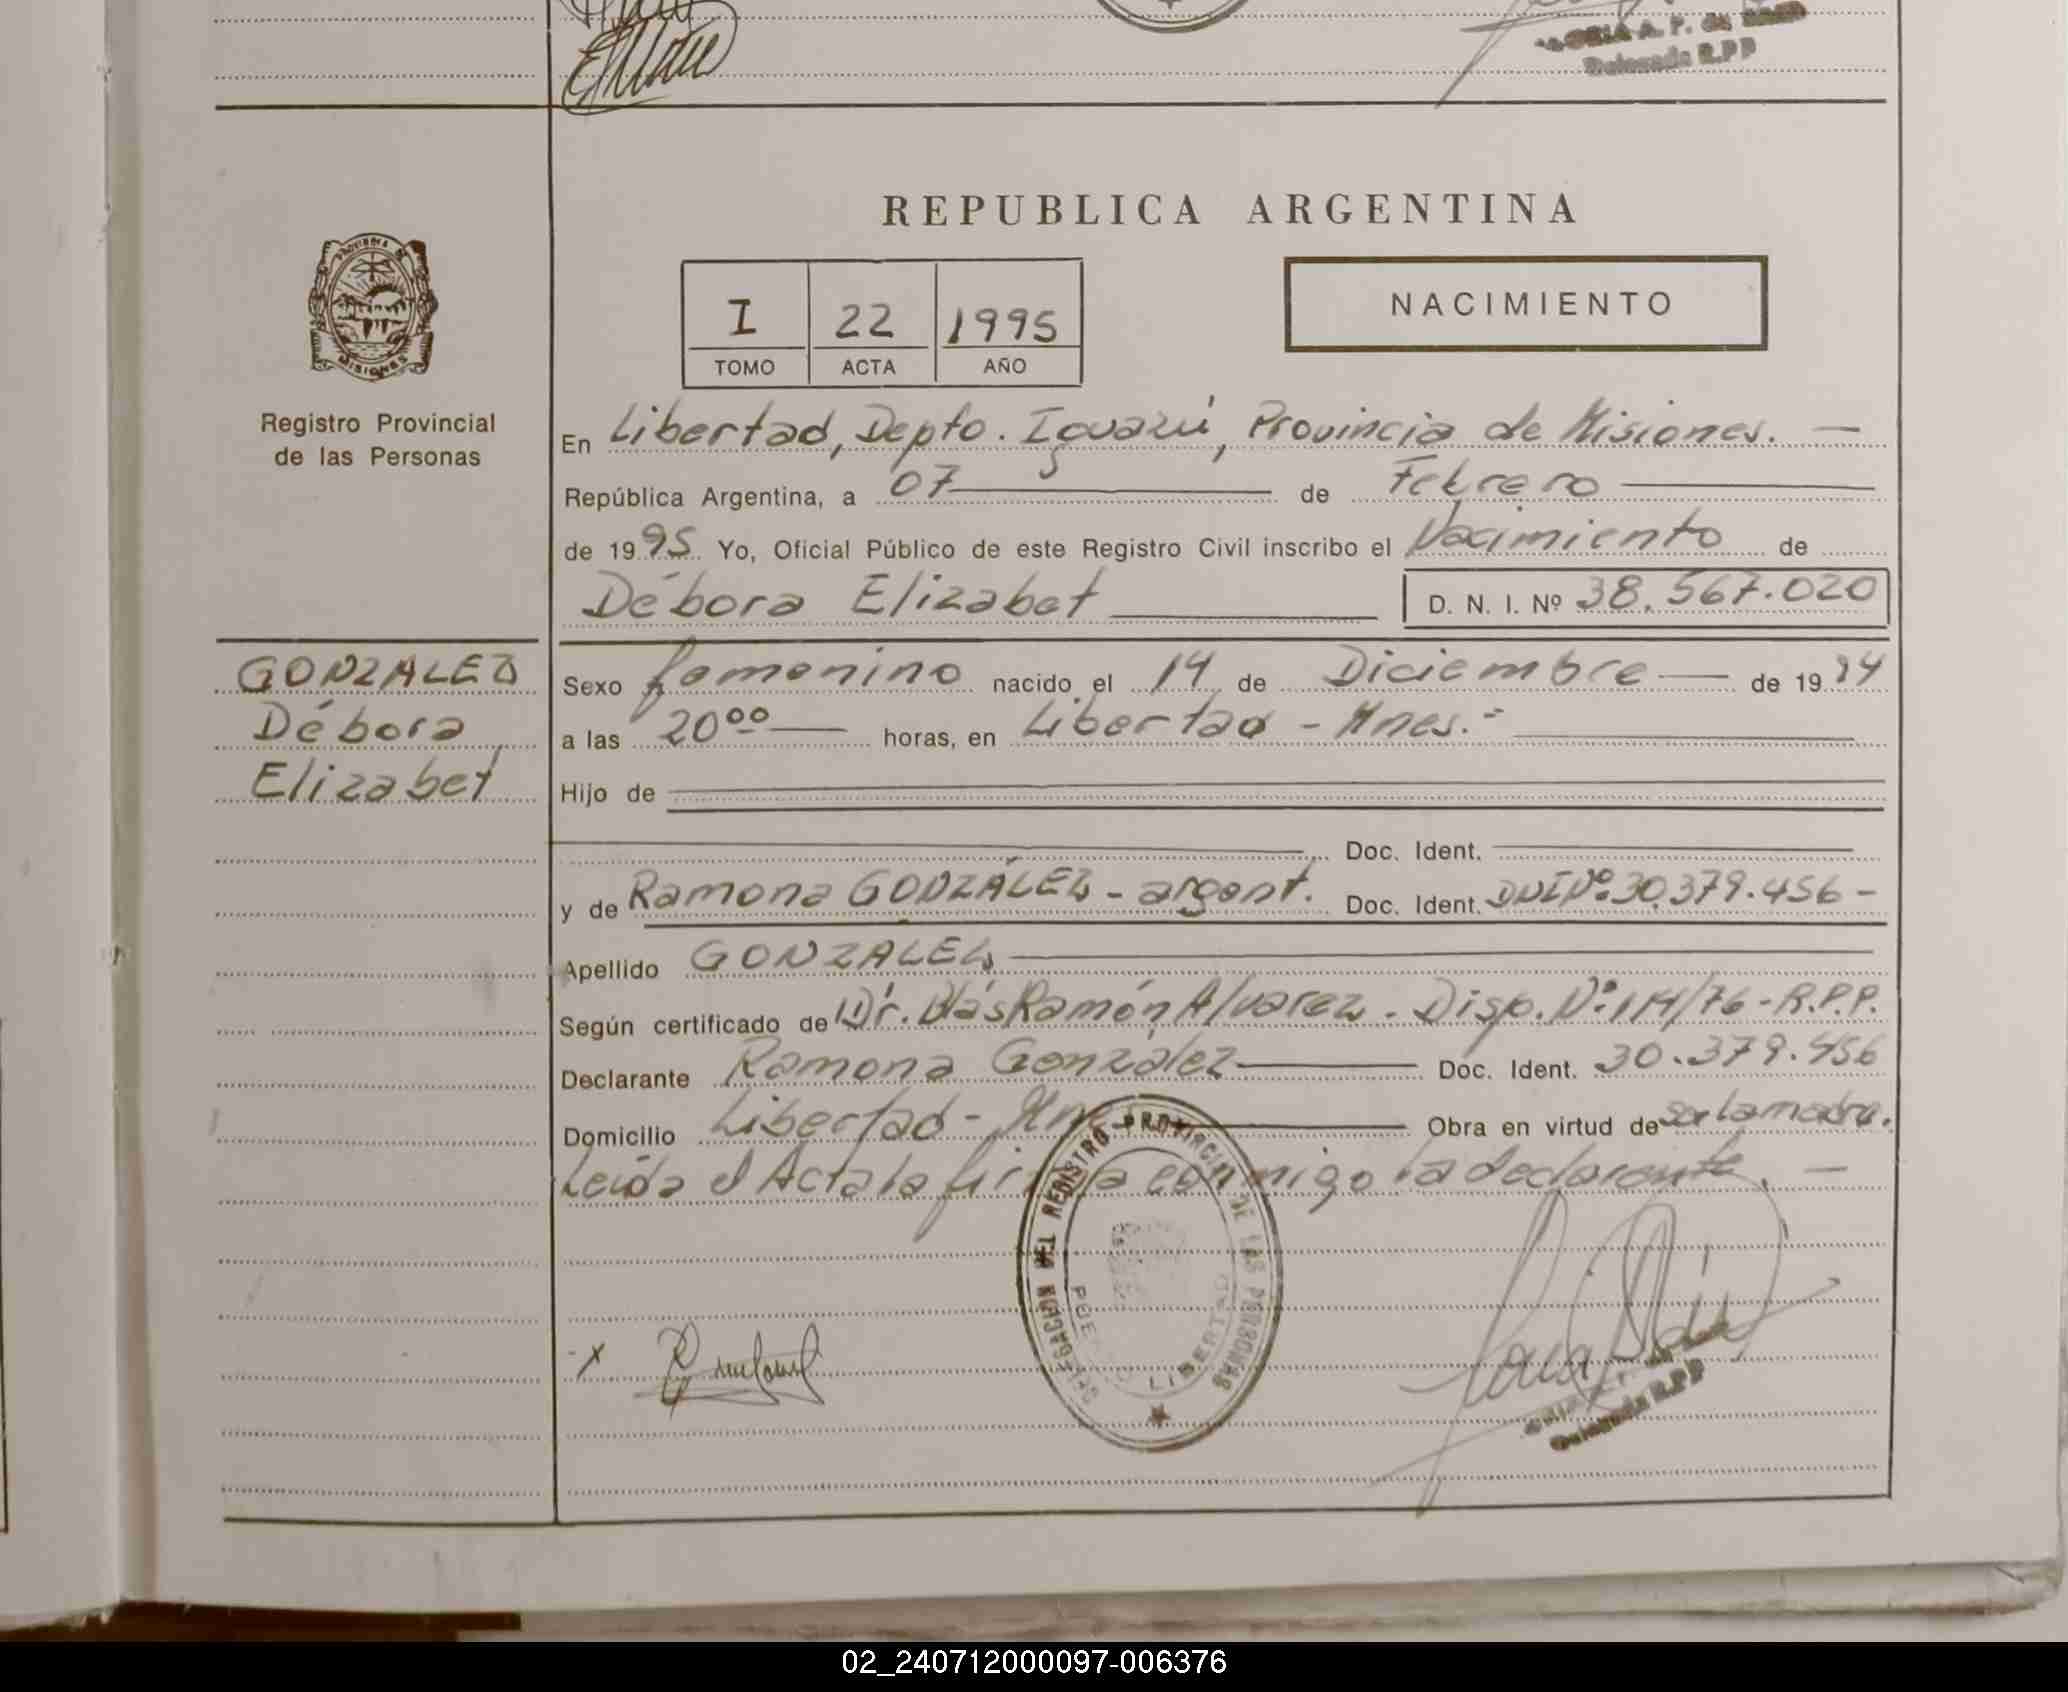 Delegada R.P.P
REPUBLICA ARGENTINA
PROVINCIA DE MISIONES
Registro Provincial
de las Personas
I 22 1995
TOMO ACTA AÑO
NACIMIENTO
En Libertad, Depto. Iguazú, Provincia de Misiones. —
República Argentina, a 07 — de Febrero —
de 1995 Yo, Oficial Público de este Registro Civil inscribo el Nacimiento de
Débora Elizabet — D. N. I. Nº 38.567.020
GONZALEZ
Débora
Elizabet
Sexo femenino nacido el 14 de Diciembre — de 1994
a las 20⁰⁰ — horas, en Libertad - Mnes.-
Hijo de
Doc. Ident.
y de Ramona GONZÁLEZ - argent. Doc. Ident. DNI Nº 30.379.456 -
Apellido GONZALEZ
Según certificado de Dr. Blás Ramón Alvarez - Disp. Nº 114/76 - R.P.P.
Declarante Ramona González — Doc. Ident. 30.379.456
Domicilio Libertad - Mnes — Obra en virtud de ser la madre.
Leída el Acta la firma conmigo la declarante. —
DELEGACION DEL REGISTRO PROVINCIAL DE LAS PERSONAS
PUERTO LIBERTAD
x
Delegada R.P.P
02_240712000097-006376